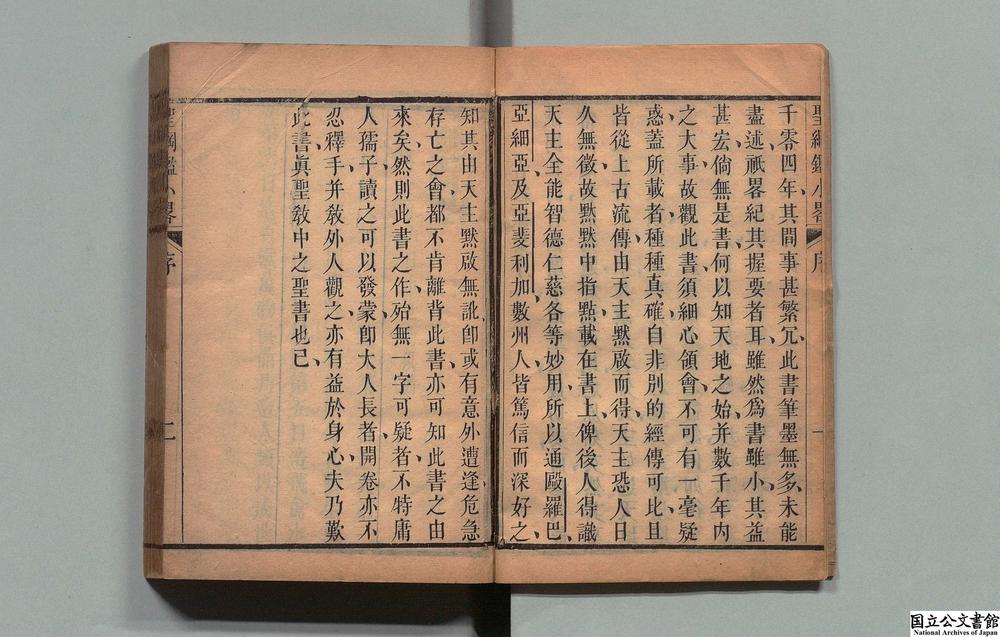 聖綱鑑小畧 序 一
千零四年、其間事甚繁冗、此書筆墨無多、未能
盡述祇畧紀其握要者耳、雖然為書雖小、其益
甚宏倘無是書、何以知天地之始、并數千年内
之大事、故觀此書、須細心領會、不可有一毫疑
惑、蓋所載者、種種真確、自非別的經傳可比、且
皆從上古流傳、由天主默啟而得、天主恐人日
久無徵、故默默中指點、載在書上、俾後人得識
天主全能智德仁慈各等妙用、所以通毆羅巴、
亞細亞、及亞斐利加、數州人、皆篤信而深好之、
知其由天主默啟無訛、卽或有意外遭逢危急
存亡之會、都不肯離背此書、亦可知此書之由
來矣、然則此書之作、殆無一字可疑者、不特庸
人孺子讀之、可以發蒙、卽大人長者、開卷亦不
忍釋手、并教外人觀之、亦有益於身心、夫乃歎
此書、眞聖教中之聖書也已、
聖綱鑑小畧 序 二
国立公文書館
National Archives of Japan